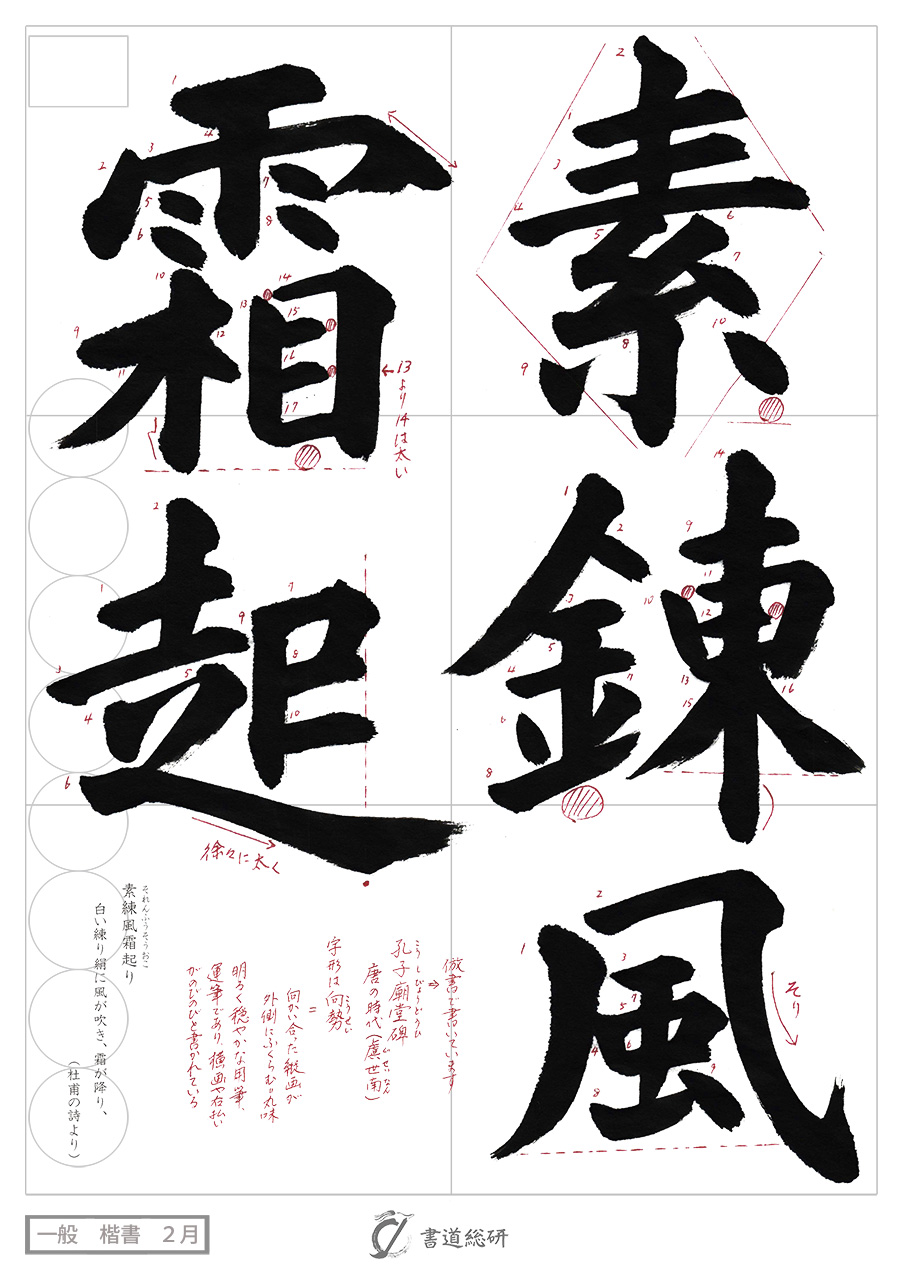 素錬風
霜起
13より14は太い
徐々に太く
そり
倣書で書いています
⇒
こうしびょうどうひ
孔子廟堂碑
唐の時代(虞世南)
ぐせいなん
字形は向勢
こうせい
=
向かい合った縦画が
外側にふくらむ丸味
明るく穏やかな用筆、
運筆であり、横画や右払い
がのびのびと書かれている
それんふうそうおこ
素練風霜起り
白い練り絹に風が吹き、霜が降り、
(杜甫の詩より)
一般 楷書 2月
書道総研